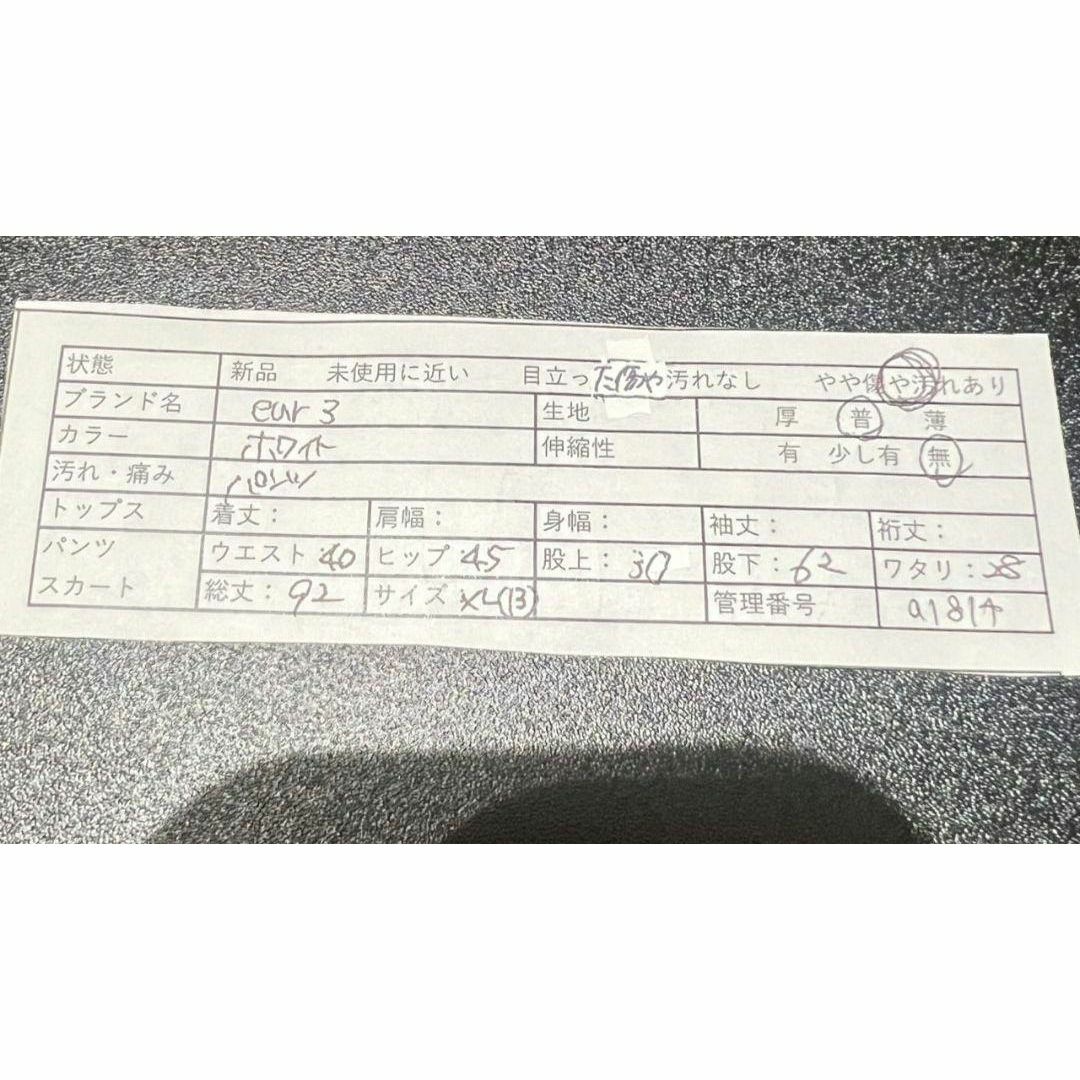 状態 新品 未使用に近い 目立った傷や汚れなし やや傷や汚れあり
ブランド名 eur3 生地 厚 普 薄
カラー ホワイト 伸縮性 有 少し有 無
汚れ・痛み パンツ
トップス 着丈: 肩幅: 身幅: 袖丈: 裄丈:
パンツ ウエスト:40 ヒップ:45 股上:30 股下:62 ワタリ:28
スカート 総丈:92 サイズ XL(13) 管理番号 a1814